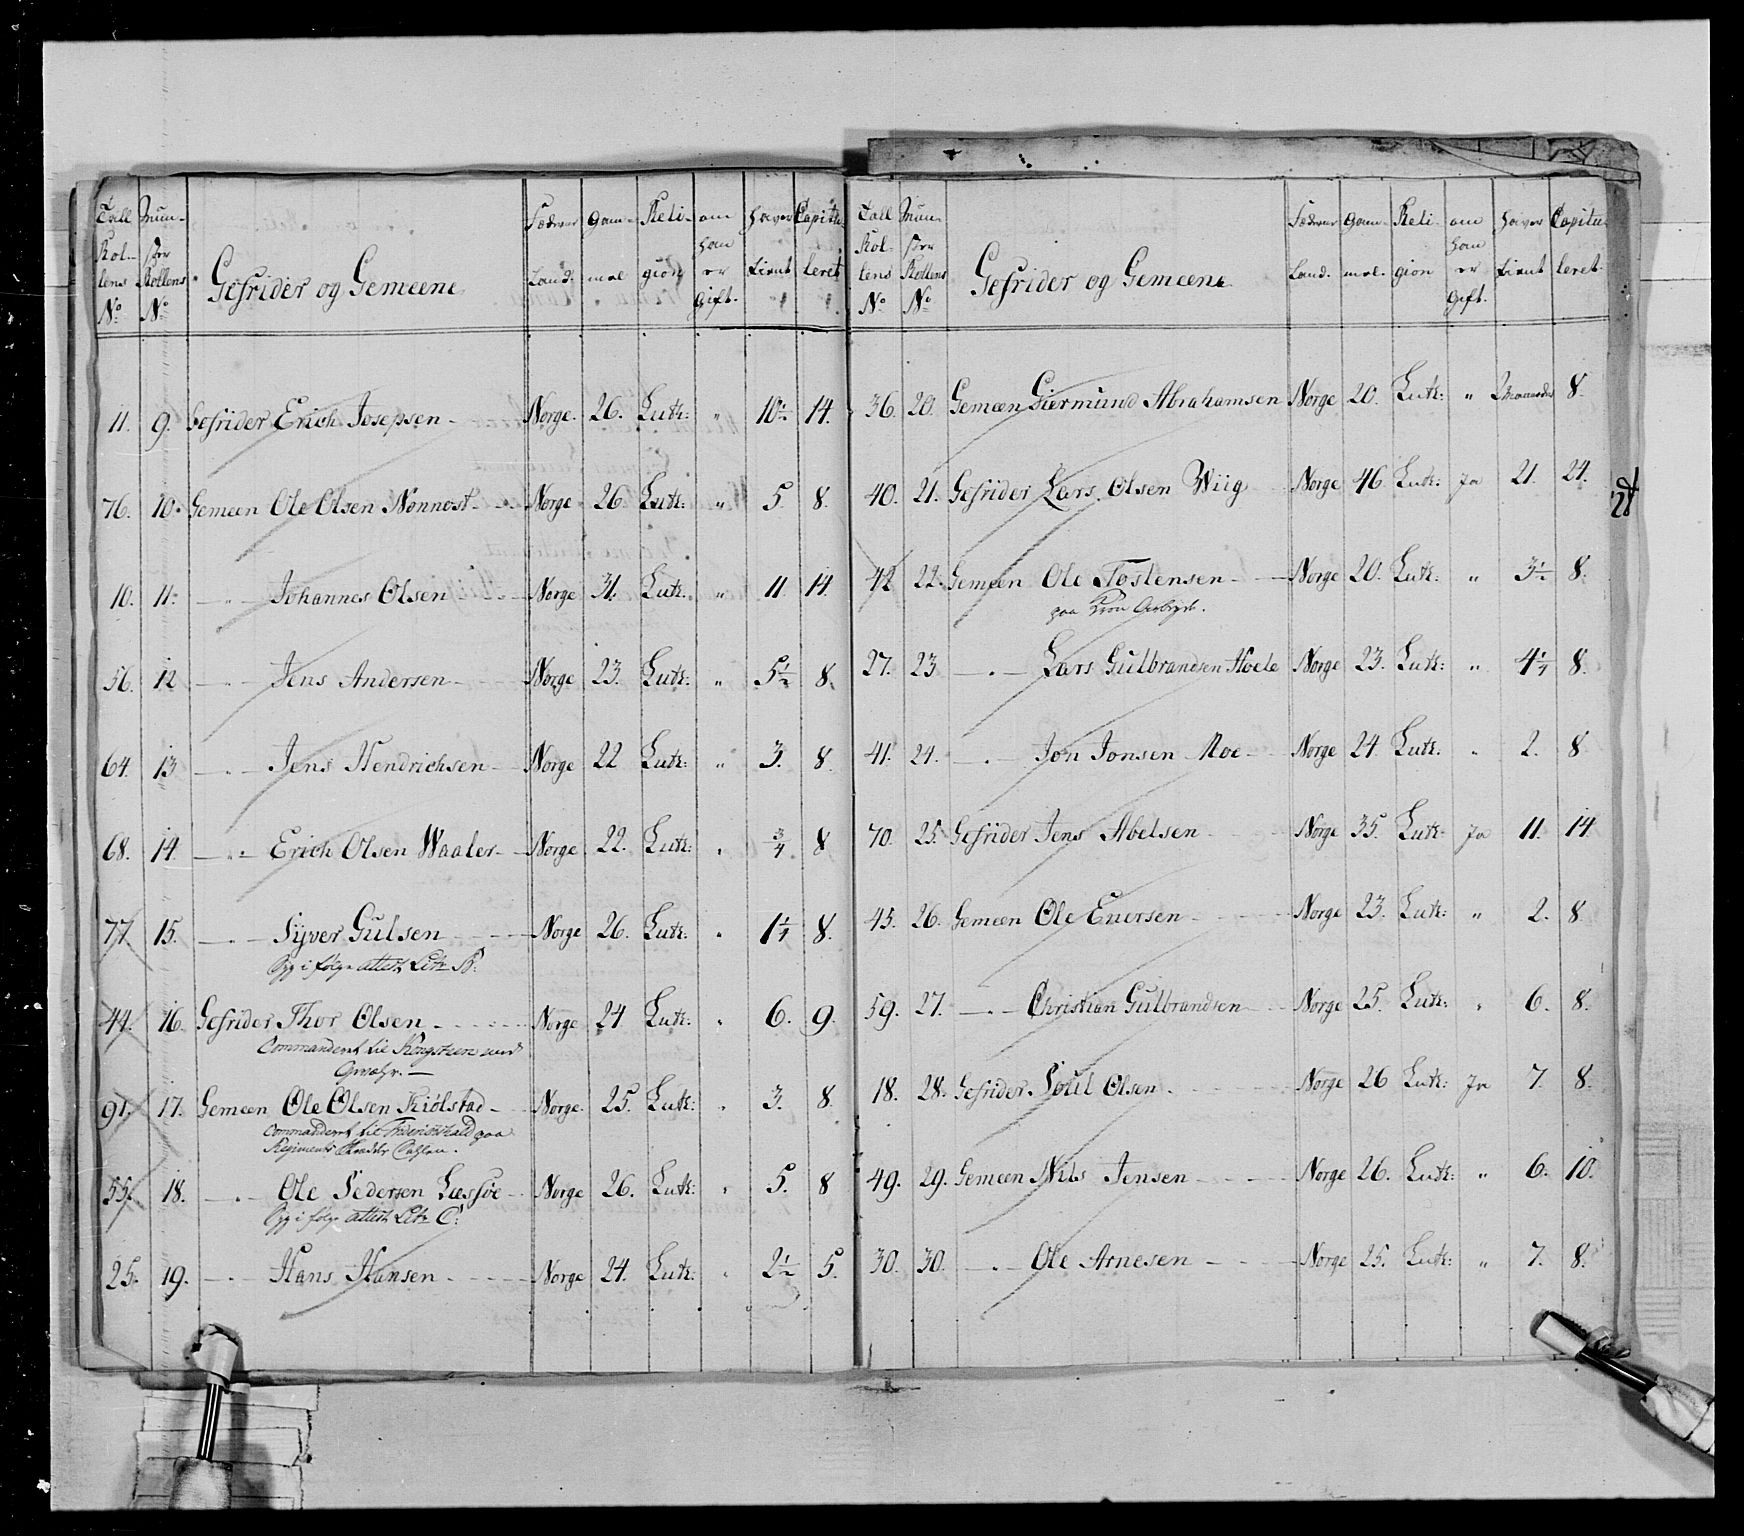 Tall Rol- lens No | Mun- ster Rollens No | Gefrider og Gemeene | Fædrene Land. | Gam- mel | Reli- gion | om han er Gift. | haver tient | Capitu- leret
11. 9. Gefrider Erich Josepsen - Norge. 26. Luth: " 10½ 14.
76. 10. Gemeen Ole Olsen Nonnost - Norge 26. Luth: " 5. 8.
10. 11. — " — Johannes Olsen - Norge 31. Luth: " 11 14.
56. 12 — " — Jens Andersen - Norge 23. Luth: " 5½ 8.
64. 13 — " — Jens Hendrichsen - Norge 22 Luth: " 3. 8.
68. 14 — " — Erich Olsen Waaler - Norge 22. Luth: " ¾. 8
77. 15. — " — Syver Gulsen - Norge 26. Luth: " 1¼ 8.
Syg i følge attest Litr B:
44. 16. Gefrider Thor Olsen - Norge 24 Luth: " 6. 9.
Commanderet til Kongsteen med
Gevæhr. —
91. 17. Gemeen Ole Olsen Kiølstad - Norge. 25. Luth: " 3. 8.
Commanderet til Friderichshald paa
Regiments
55. 18. — " — Ole Pedersen Læssøe - Norge 26. Luth: " 5. 8
Syg i følge attest Litr C:
25. 19. — " — Hans Hansen - Norge 24. Luth: " 2½ 5.
Tall Rol- lens No | Mun- ster Rollens No | Gefrider og Gemeene | Fædrene Land. | Gam- mel. | Reli- gion | om han er Gift. | haver tient | Capitu- leret.
36. 20. Gemeen Giermund Abrahamsen Norge 20. Luth: " 2 Maaneder 8.
40. 21. Gefrider Lars Olsen Wiig Norge 46 Luth: Ja 21. 24.
42 22. Gemeen Ole Tostensen - Norge 20. Luth: " 3½ 8.
paa Kron Arbeyde.
27. 23 — " — Lars Gulbrandsen Hoele Norge 23. Luth: " 4¼ 8.
41. 24. — " — Jon Jonsen Moe - Norge 24 Luth: " 2. 8
70. 25. Gefrider Jens Abelsen - Norge 35. Luth: Ja 11. 14
45. 26. Gemeen Ole Enersen - Norge 23. Luth: " 2. 8
59. 27. — " — Christian Gulbrandsen - Norge 25. Luth: " 6. 8.
18. 28. Gefrider Poul Olsen - Norge 26 Luth: Ja 7. 8.
49. 29. Gemeen Niels Jensen - Norge 26. Luth: " 6. 10.
30. 30. — " — Ole Arnesen - Norge 25. Luth: " 7. 8.